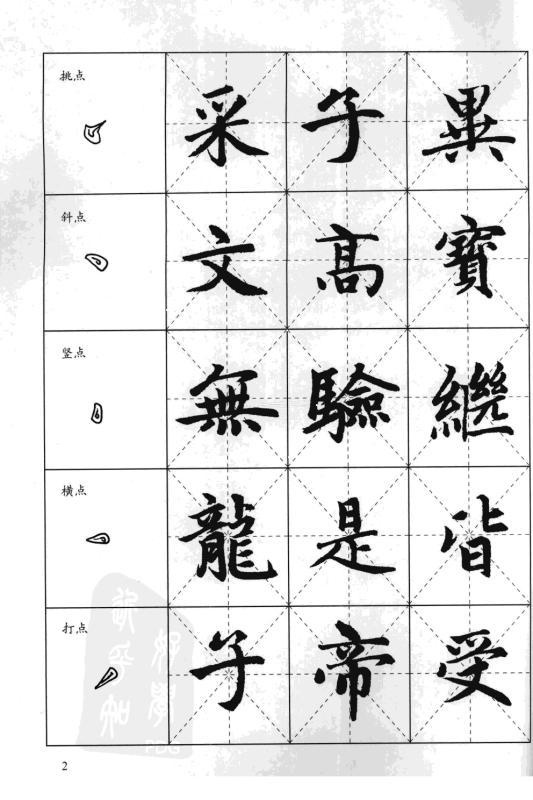 挑点 采 子 異
斜点 文 髙 寶
竖点 無 驗 繼
横点 龍 是 皆
打点 子 帝 受
PDG
2